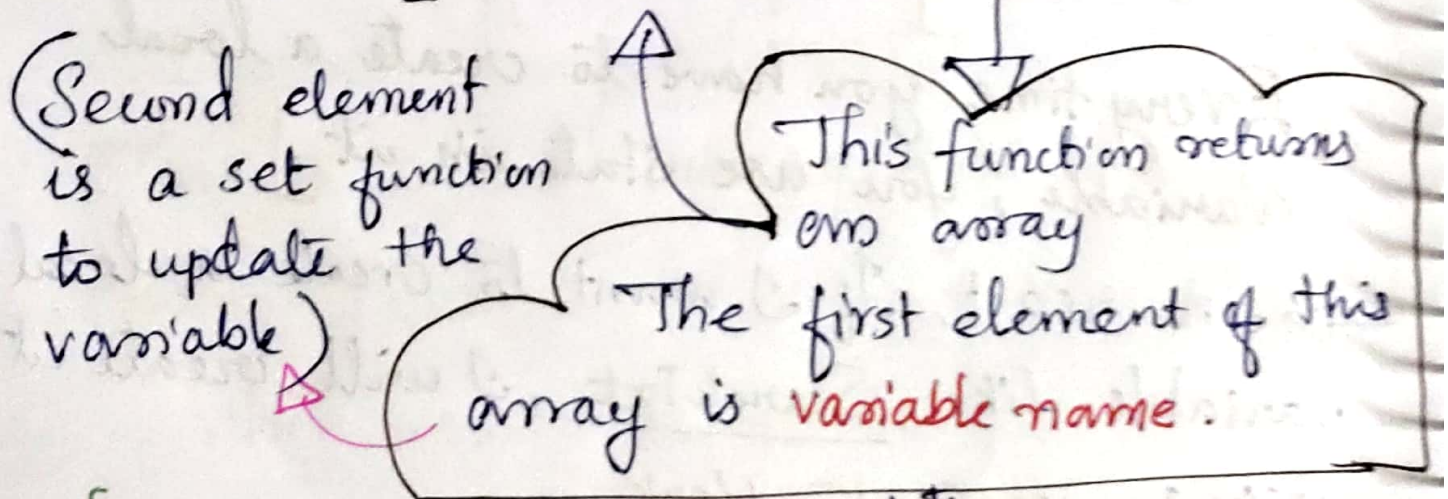 (Second element
is a set function
to update the
variable)
This function returns
an array
The first element of this
array is variable name.